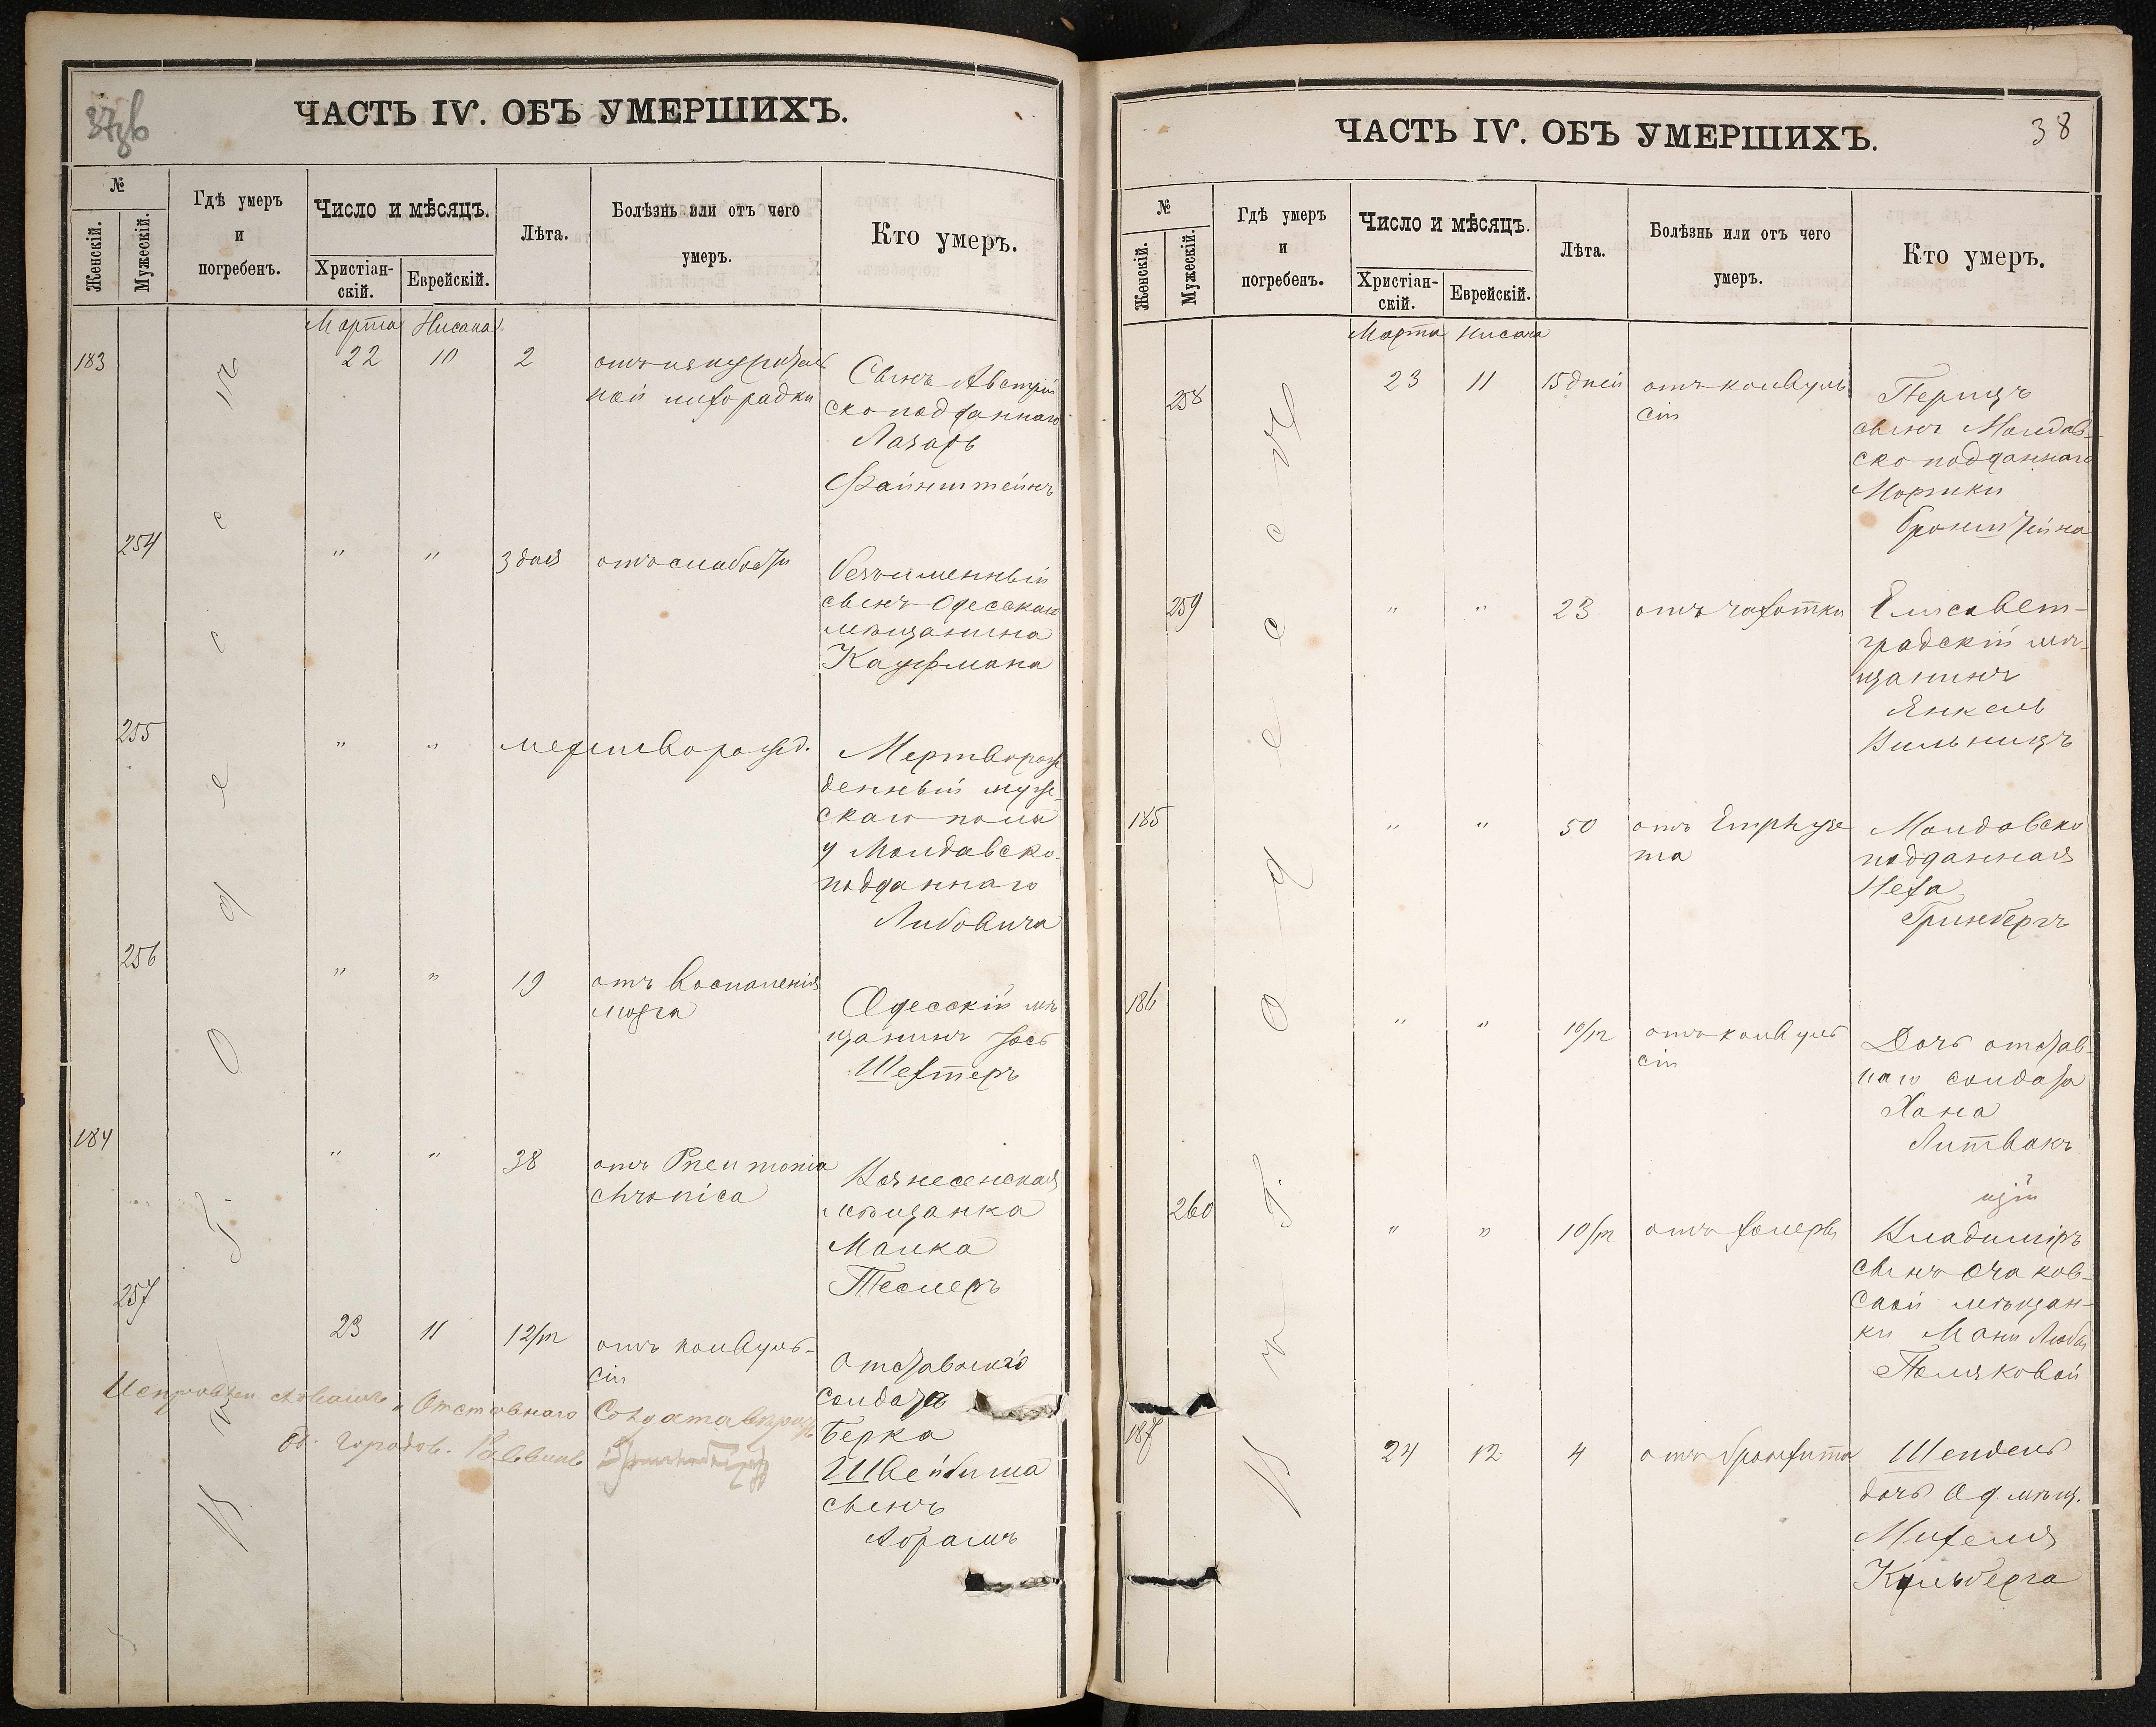 37об
ЧАСТЬ IV. ОБЪ УМЕРШИХЪ.
№
Женскій.
Мужескій.
Гдѣ умеръ
и
погребенъ.
Число и мѣсяцъ.
Христіан-
скій.
Еврейскій.
Лѣта.
Болѣзнь или отъ чего
умеръ.
Кто умеръ.
Марта Нисана
183 22 10 2
ной лихорадки
Сынъ Австрій
скоподданнаго
Лазарь
Файнштейнъ
254 " " 3 дня отъ слабости
безъименный
сынъ Одесскаго
мѣщанина
Кауфмана
255 " " мертворожд.
Мертворож
денный муже
скаго пола
у Молдавско-
подданнаго
Либовича
256 " " 19 отъ воспаленія
мозга
Одесскій мѣ
щанинъ Іось
Шехтеръ
184 " " 38 отъ Pneumonia
chronica
Вознесенская
мѣщанка
Малка
Теслеръ
257 23 11 12/m отъ конвуль-
сіи
Отставнаго
солдата
Берка
Швейбиша
сынъ
Абрамъ
Отставнаго Солдата вѣрно
Об. Городов. Раввинъ
Въ г. Одессѣ
38
ЧАСТЬ IV. ОБЪ УМЕРШИХЪ.
№
Женскій.
Мужескій.
Гдѣ умеръ
и
погребенъ.
Число и мѣсяцъ.
Христіан-
скій.
Еврейскій.
Лѣта.
Болѣзнь или отъ чего
умеръ.
Кто умеръ.
Марта Нисана
258 23 11 15 дней отъ конвуль
сіи
Перицъ
сынъ Молдав-
скоподданнаго
Мордки
Бронштейна
259 " " 23 отъ чахотки
Елисавет-
градскій мѣ-
щанинъ
Янкель
Вильницъ
185 " " 50 отъ Emphyse
ma
Молдавско
подданная
Неха
Гринбергъ
186 " " 10/m отъ конвуль
сіи
Дочь отстав-
наго солдата
Хана
Литвакъ
260 " " 10/m отъ холеры
Владиміръ
сынъ Очаков-
ской мѣщан-
ки Мани Любы
Поляковой
187 24 12 4 отъ бронхита
Шендель
дочь Од. мѣщ.
Михеля
Кульберга
Въ г. Одессѣ